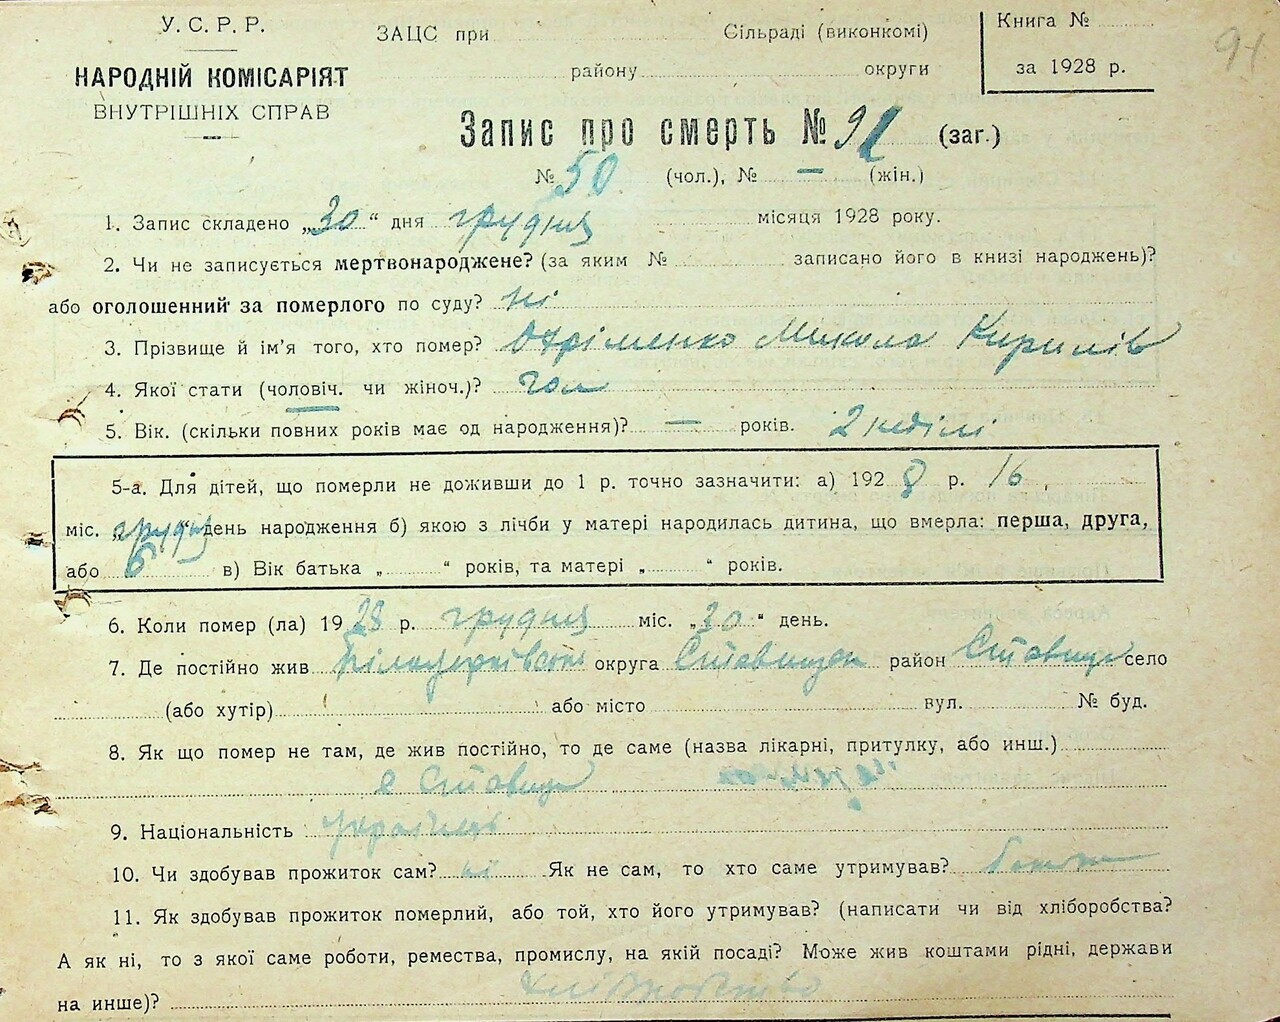 91
У. С. Р. Р.
НАРОДНІЙ КОМІСАРІЯТ
ВНУТРІШНІХ СПРАВ
ЗАЦС при Сільраді (виконкомі)
району округи
Книга №
за 1928 р.
Запис про смерть № 91 (заг.)
№ 50 (чол.), № — (жін.)
1. Запис складено „30“ дня грудня місяця 1928 року.
2. Чи не записується мертвонароджене? (за яким № записано його в книзі народжень)?
або оголошенний за померлого по суду? ні
3. Прізвище й ім'я того, хто помер? Охріменко Микола Кирилів
4. Якої стати (чоловіч. чи жіноч.)? чол
5. Вік. (скільки повних років має од народження)? — років. 2 неділі
5-а. Для дітей, що померли не доживши до 1 р. точно зазначити: а) 1928 р. 16,
міс. „грудня“ день народження б) якою з лічби у матері народилась дитина, що вмерла: перша, друга,
або 6 в) Вік батька „ “ років, та матері „ “ років.
6. Коли помер (ла) 1928 р. грудня міс. „30“ день.
7. Де постійно жив Білоцерківської округа Ставищан район Ставище село
(або хутір) або місто вул. № буд.
8. Як що помер не там, де жив постійно, то де саме (назва лікарні, притулку, або инш.)
Ставище
9. Національність українець
10. Чи здобував прожиток сам? ні Як не сам, то хто саме утримував? батьки
11. Як здобував прожиток померлий, або той, хто його утримував? (написати чи від хліборобства?
А як ні, то з якої саме роботи, ремества, промислу, на якій посаді? Може жив коштами рідні, держави
на инше)? Хліборобство